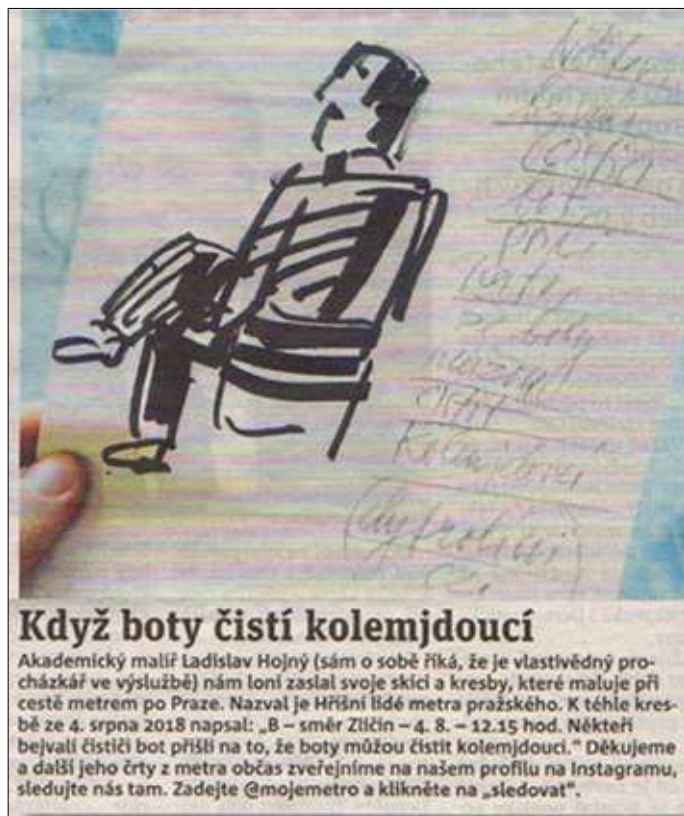 boty
čistit
kolemjdoucí
Když boty čistí kolemjdoucí
Akademický malíř Ladislav Hojný (sám o sobě říká, že je vlastivědný pro-
cházkář ve výslužbě) nám loni zaslal svoje skici a kresby, které maluje při
cestě metrem po Praze. Nazval je Hříšní lidé metra pražského. K téhle kres-
bě ze 4. srpna 2018 napsal: „B – směr Zličín – 4. 8. – 12.15 hod. Někteří
bejvalí čističi bot přišli na to, že boty můžou čistit kolemjdoucí.“ Děkujeme
a další jeho črty z metra občas zveřejníme na našem profilu na Instagramu,
sledujte nás tam. Zadejte @mojemetro a klikněte na „sledovat“.